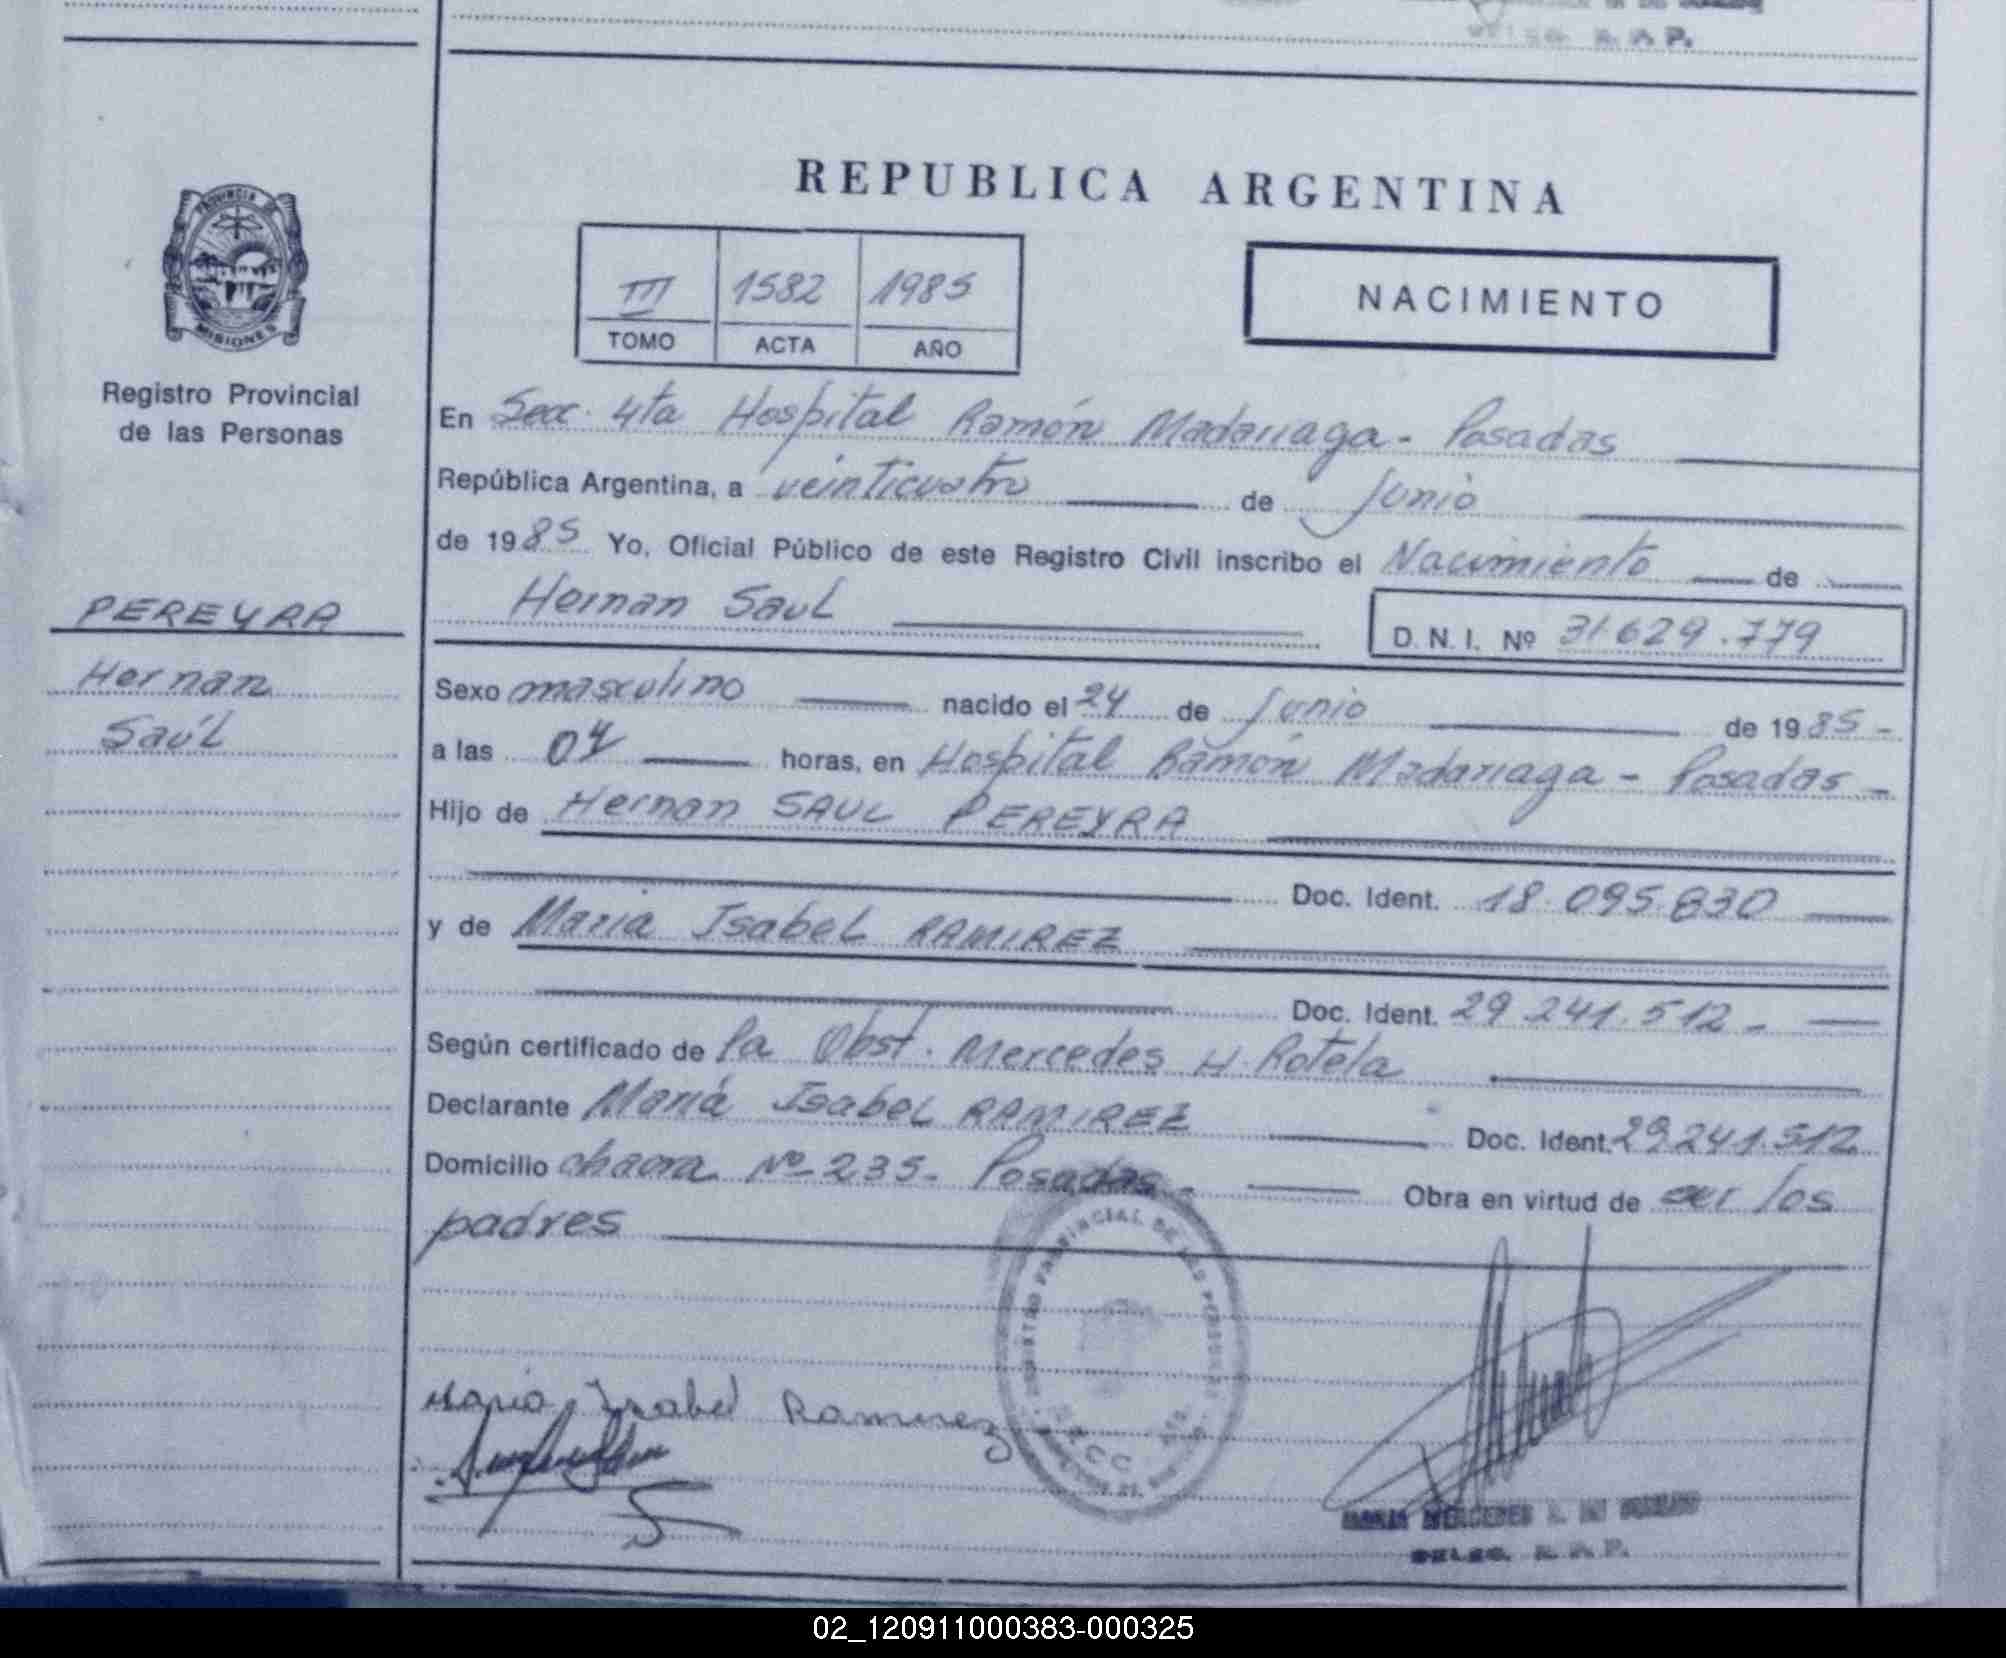 REPUBLICA ARGENTINA
PROVINCIA DE
MISIONES
Registro Provincial
de las Personas
III 1582 1985
TOMO ACTA AÑO
NACIMIENTO
PEREYRA
Hernan
Saúl
En Secc. 4ta Hospital Ramón Madariaga - Posadas
República Argentina, a veinticuatro de Junio
de 1985 Yo, Oficial Público de este Registro Civil inscribo el Nacimiento de
Hernan Saul D. N. I. Nº 31.629.779
Sexo masculino nacido el 24 de Junio de 1985 -
a las 04 horas, en Hospital Ramón Madariaga - Posadas -
Hijo de Hernan SAUL PEREYRA
Doc. Ident. 18.095.830
y de Maria Isabel RAMIREZ
Doc. Ident. 29.241.512 -
Según certificado de la Obst. Mercedes H. Rotela
Declarante Mariá Isabel RAMIREZ Doc. Ident. 29.241.512
Domicilio chacra Nº 235 - Posadas - Obra en virtud de ser los
padres
REGISTRO PROVINCIAL DE LAS PERSONAS
Maria Isabel Ramirez
MARIA MERCEDES
DELEG. R. P. P.
02_120911000383-000325